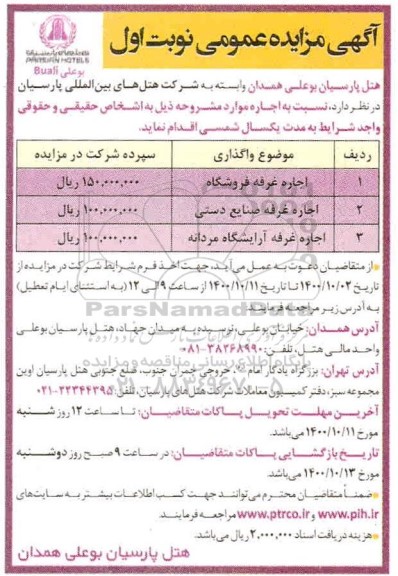 آگهی مزایده عمومی نوبت اول
PARSIAN HOTELS
بوعلی Buali
هتل پارسیان بوعلی همدان وابسته به شرکت هتل‌های بین‌المللی پارسیان
در نظر دارد، نسبت به اجاره موارد مشروحه ذیل به اشخاص حقیقی و حقوقی
واجد شرایط به مدت یکسال شمسی اقدام نماید.
ردیف موضوع واگذاری سپرده شرکت در مزایده
۱ اجاره غرفه فروشگاه ۱۵۰,۰۰۰,۰۰۰ ریال
۲ اجاره غرفه صنایع دستی ۱۰۰,۰۰۰,۰۰۰ ریال
۳ اجاره غرفه آرایشگاه مردانه ۱۰۰,۰۰۰,۰۰۰ ریال
از متقاضیان دعوت به عمل می‌آید، جهت اخذ فرم شرایط شرکت در مزایده از
تاریخ ۱۴۰۰/۱۰/۰۲ تا تاریخ ۱۴۰۰/۱۰/۱۱ از ساعت ۹ الی ۱۲ (به استثنای ایام تعطیل)
به آدرس زیر مراجعه فرمایند.
ParsNamadData
آدرس همدان: خیابان بوعلی، نرسیده به میدان جهاد، هتل پارسیان بوعلی
واحد مالی هتل، تلفن: ۳۸۳۶۸۹۹۰-۰۸۱
پایگاه اطلاع رسانی مناقصه و مزایده
آدرس تهران: بزرگراه یادگار امام ره، خروجی چمران جنوب، ضلع جنوبی هتل پارسیان اوین
مجموعه سبز، دفتر کمیسیون معاملات شرکت هتل‌های پارسیان، تلفن: ۲۲۳۴۴۳۹۵-۰۲۱
آخرین مهلت تحویل پاکات متقاضیان: تا ساعت ۱۲ روز شنبه
مورخ ۱۴۰۰/۱۰/۱۱ می‌باشد.
تاریخ بازگشایی پاکات متقاضیان: در ساعت ۹ صبح روز دوشنبه
مورخ ۱۴۰۰/۱۰/۱۳ می‌باشد.
ضمناً متقاضیان محترم می‌توانند جهت کسب اطلاعات بیشتر به سایت‌های
www.pih.ir و www.ptrco.ir مراجعه فرمایند.
هزینه دریافت اسناد ۲,۰۰۰,۰۰۰ ریال می‌باشد.
هتل پارسیان بوعلی همدان